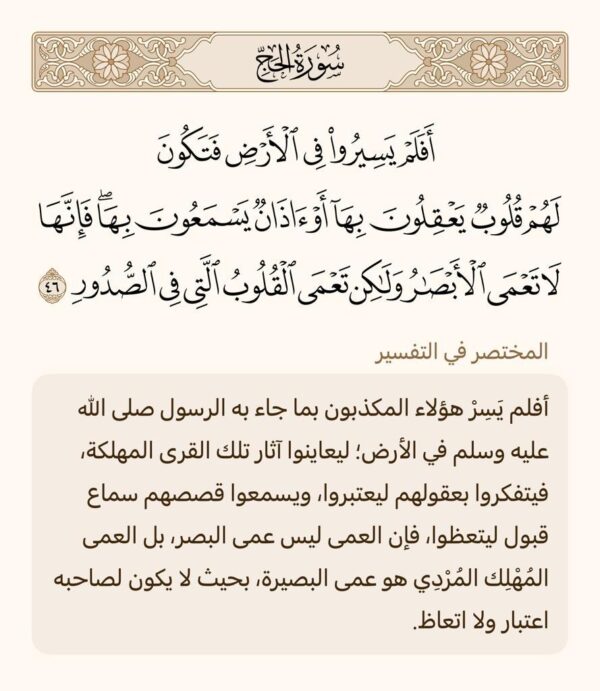 سُورَةُ الحَجِّ
أَفَلَمْ يَسِيرُوا۟ فِى ٱلْأَرْضِ فَتَكُونَ
لَهُمْ قُلُوبٌ يَعْقِلُونَ بِهَآ أَوْ ءَاذَانٌ يَسْمَعُونَ بِهَا ۖ فَإِنَّهَا
لَا تَعْمَى ٱلْأَبْصَـٰرُ وَلَـٰكِن تَعْمَى ٱلْقُلُوبُ ٱلَّتِى فِى ٱلصُّدُورِ ٤٦
المختصر في التفسير
أفلم يَسِرْ هؤلاء المكذبون بما جاء به الرسول صلى الله
عليه وسلم في الأرض؛ ليعاينوا آثار تلك القرى المهلكة،
فيتفكروا بعقولهم ليعتبروا، ويسمعوا قصصهم سماع
قبول ليتعظوا، فإن العمى ليس عمى البصر، بل العمى
المُهْلِك المُرْدِي هو عمى البصيرة، بحيث لا يكون لصاحبه
اعتبار ولا اتعاظ.